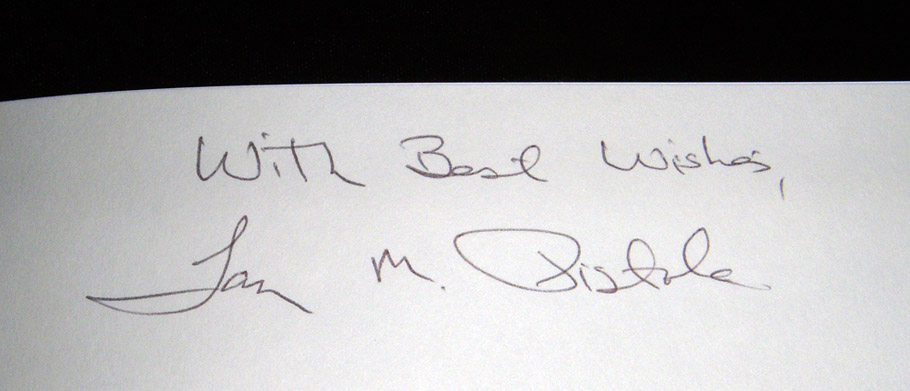 With Best Wishes,
Ian M. Pistole